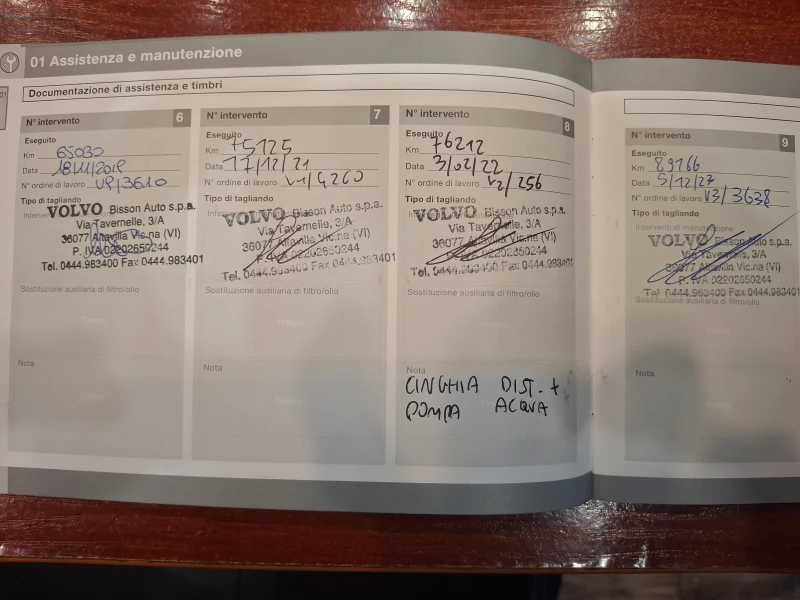 01 Assistenza e manutenzione
Documentazione di assistenza e timbri
N° intervento 6
Eseguito
Km 65030
Data 18/11/2019
N° ordine di lavoro VP/3610
Tipo di tagliando
VOLVO Bisson Auto s.p.a.
Via Tavernelle, 3/A
36077 Altavilla Vic.na (VI)
P. IVA 02202650244
Tel. 0444.983400 Fax 0444.983401
Sostituzione ausiliaria di filtro/olio
Timbro
Nota
N° intervento 7
Eseguito
Km 75125
Data 17/12/21
N° ordine di lavoro V1/4260
Tipo di tagliando
VOLVO Bisson Auto s.p.a.
Via Tavernelle, 3/A
36077 Altavilla Vic.na (VI)
P. IVA 02202650244
Tel. 0444.983400 Fax 0444.983401
Sostituzione ausiliaria di filtro/olio
Timbro
Nota
N° intervento 8
Eseguito
Km 76212
Data 3/02/22
N° ordine di lavoro V2/256
Tipo di tagliando
VOLVO Bisson Auto s.p.a.
Via Tavernelle, 3/A
36077 Altavilla Vic.na (VI)
P. IVA 02202650244
Tel. 0444.983400 Fax 0444.983401
Sostituzione ausiliaria di filtro/olio
Nota
CINGHIA DIST. +
POMPA ACQUA
N° intervento 9
Eseguito
Km 89166
Data
N° ordine di lavoro V3/3638
Tipo di tagliando
Interventi di manutenzione
VOLVO Bisson Auto s.p.a.
Via Tavernelle, 3/A
36077 Altavilla Vic.na (VI)
P. IVA 02202650244
Tel. 0444.983400 Fax 0444.983401
Sostituzione ausiliaria di filtro/olio
Nota